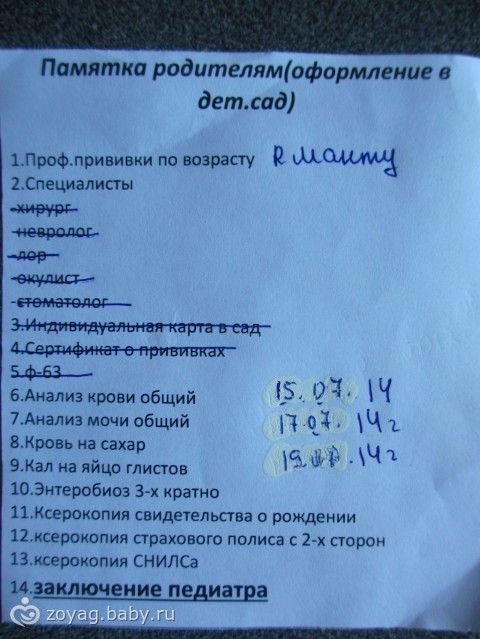 Памятка родителям(оформление в
дет.сад)
1.Проф.прививки по возрасту R манту
2.Специалисты
-хирург
-невролог
-лор
-окулист
-стоматолог
3.Индивидуальная карта в сад
4.Сертификат о прививках
5.ф-63
6.Анализ крови общий 15.07.14
7.Анализ мочи общий 17.07.14г
8.Кровь на сахар
9.Кал на яйцо глистов .14г
10.Энтеробиоз 3-х кратно
11.Ксерокопия свидетельства о рождении
12.ксерокопия страхового полиса с 2-х сторон
13.ксерокопия СНИЛСа
14.заключение педиатра
zoyag.baby.ru